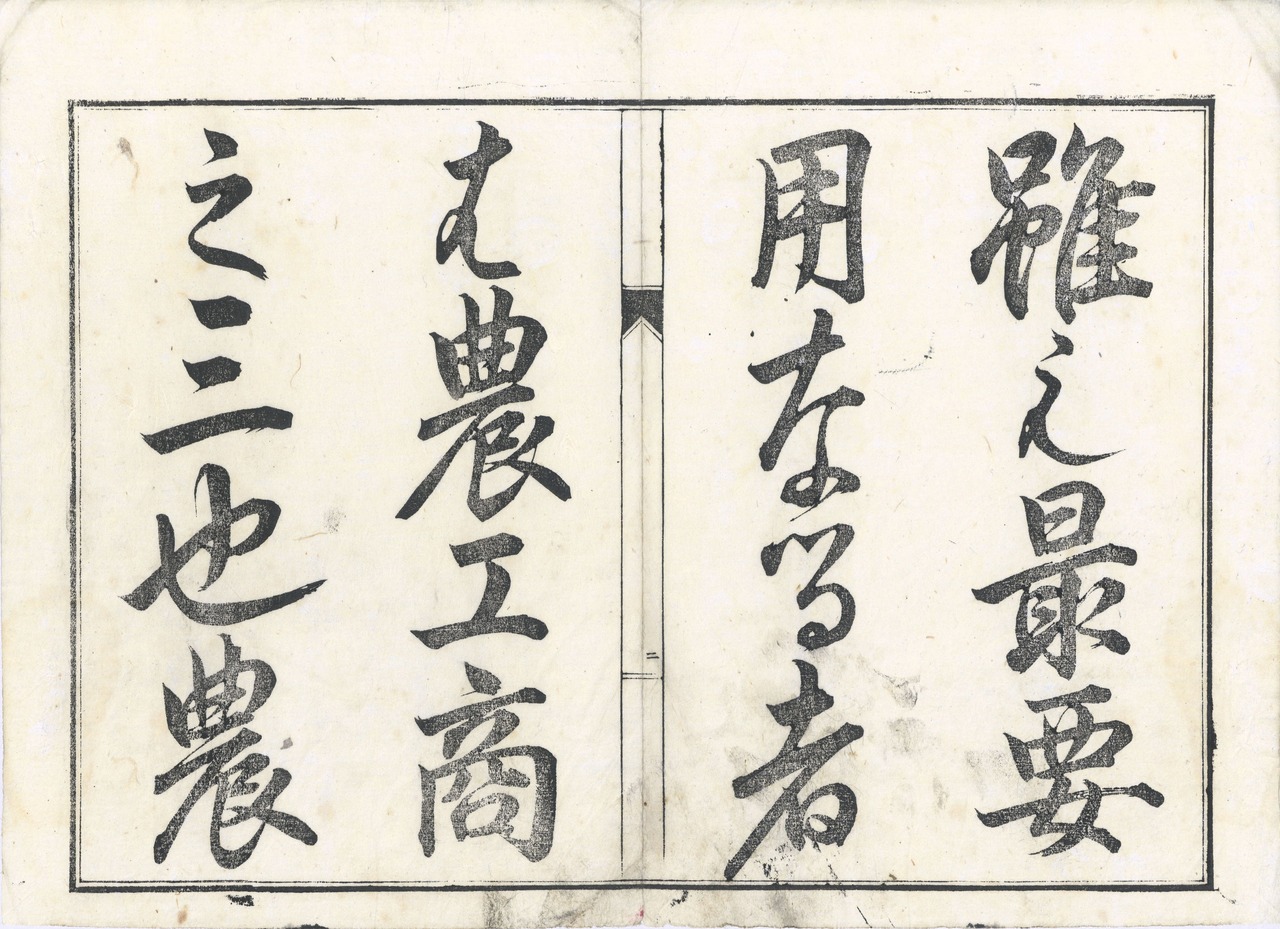 雖之最要
用なる者
は農工商
之三也農
二